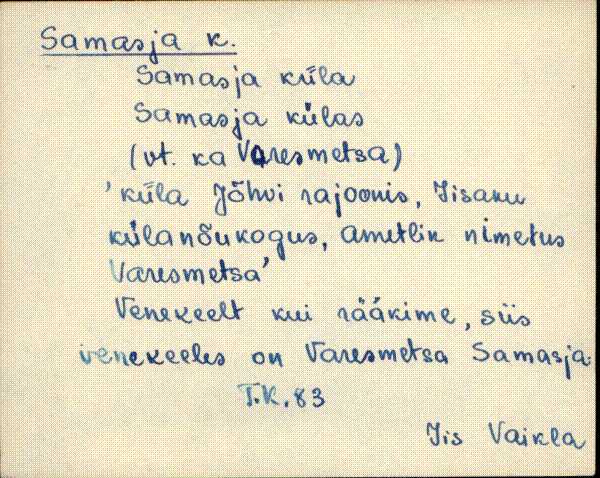 Samasja k.
Samasja küla
Samasja külas
(vt. ka Varesmetsa)
'küla Jõhvi rajoonis, Iisaku
külanõukogus, ametlik nimetus
Varesmetsa'
Venekeelt kui rääkime, siis
venekeeles on Varesmetsa Samasja.
T.K. 83
Iis Vaikla